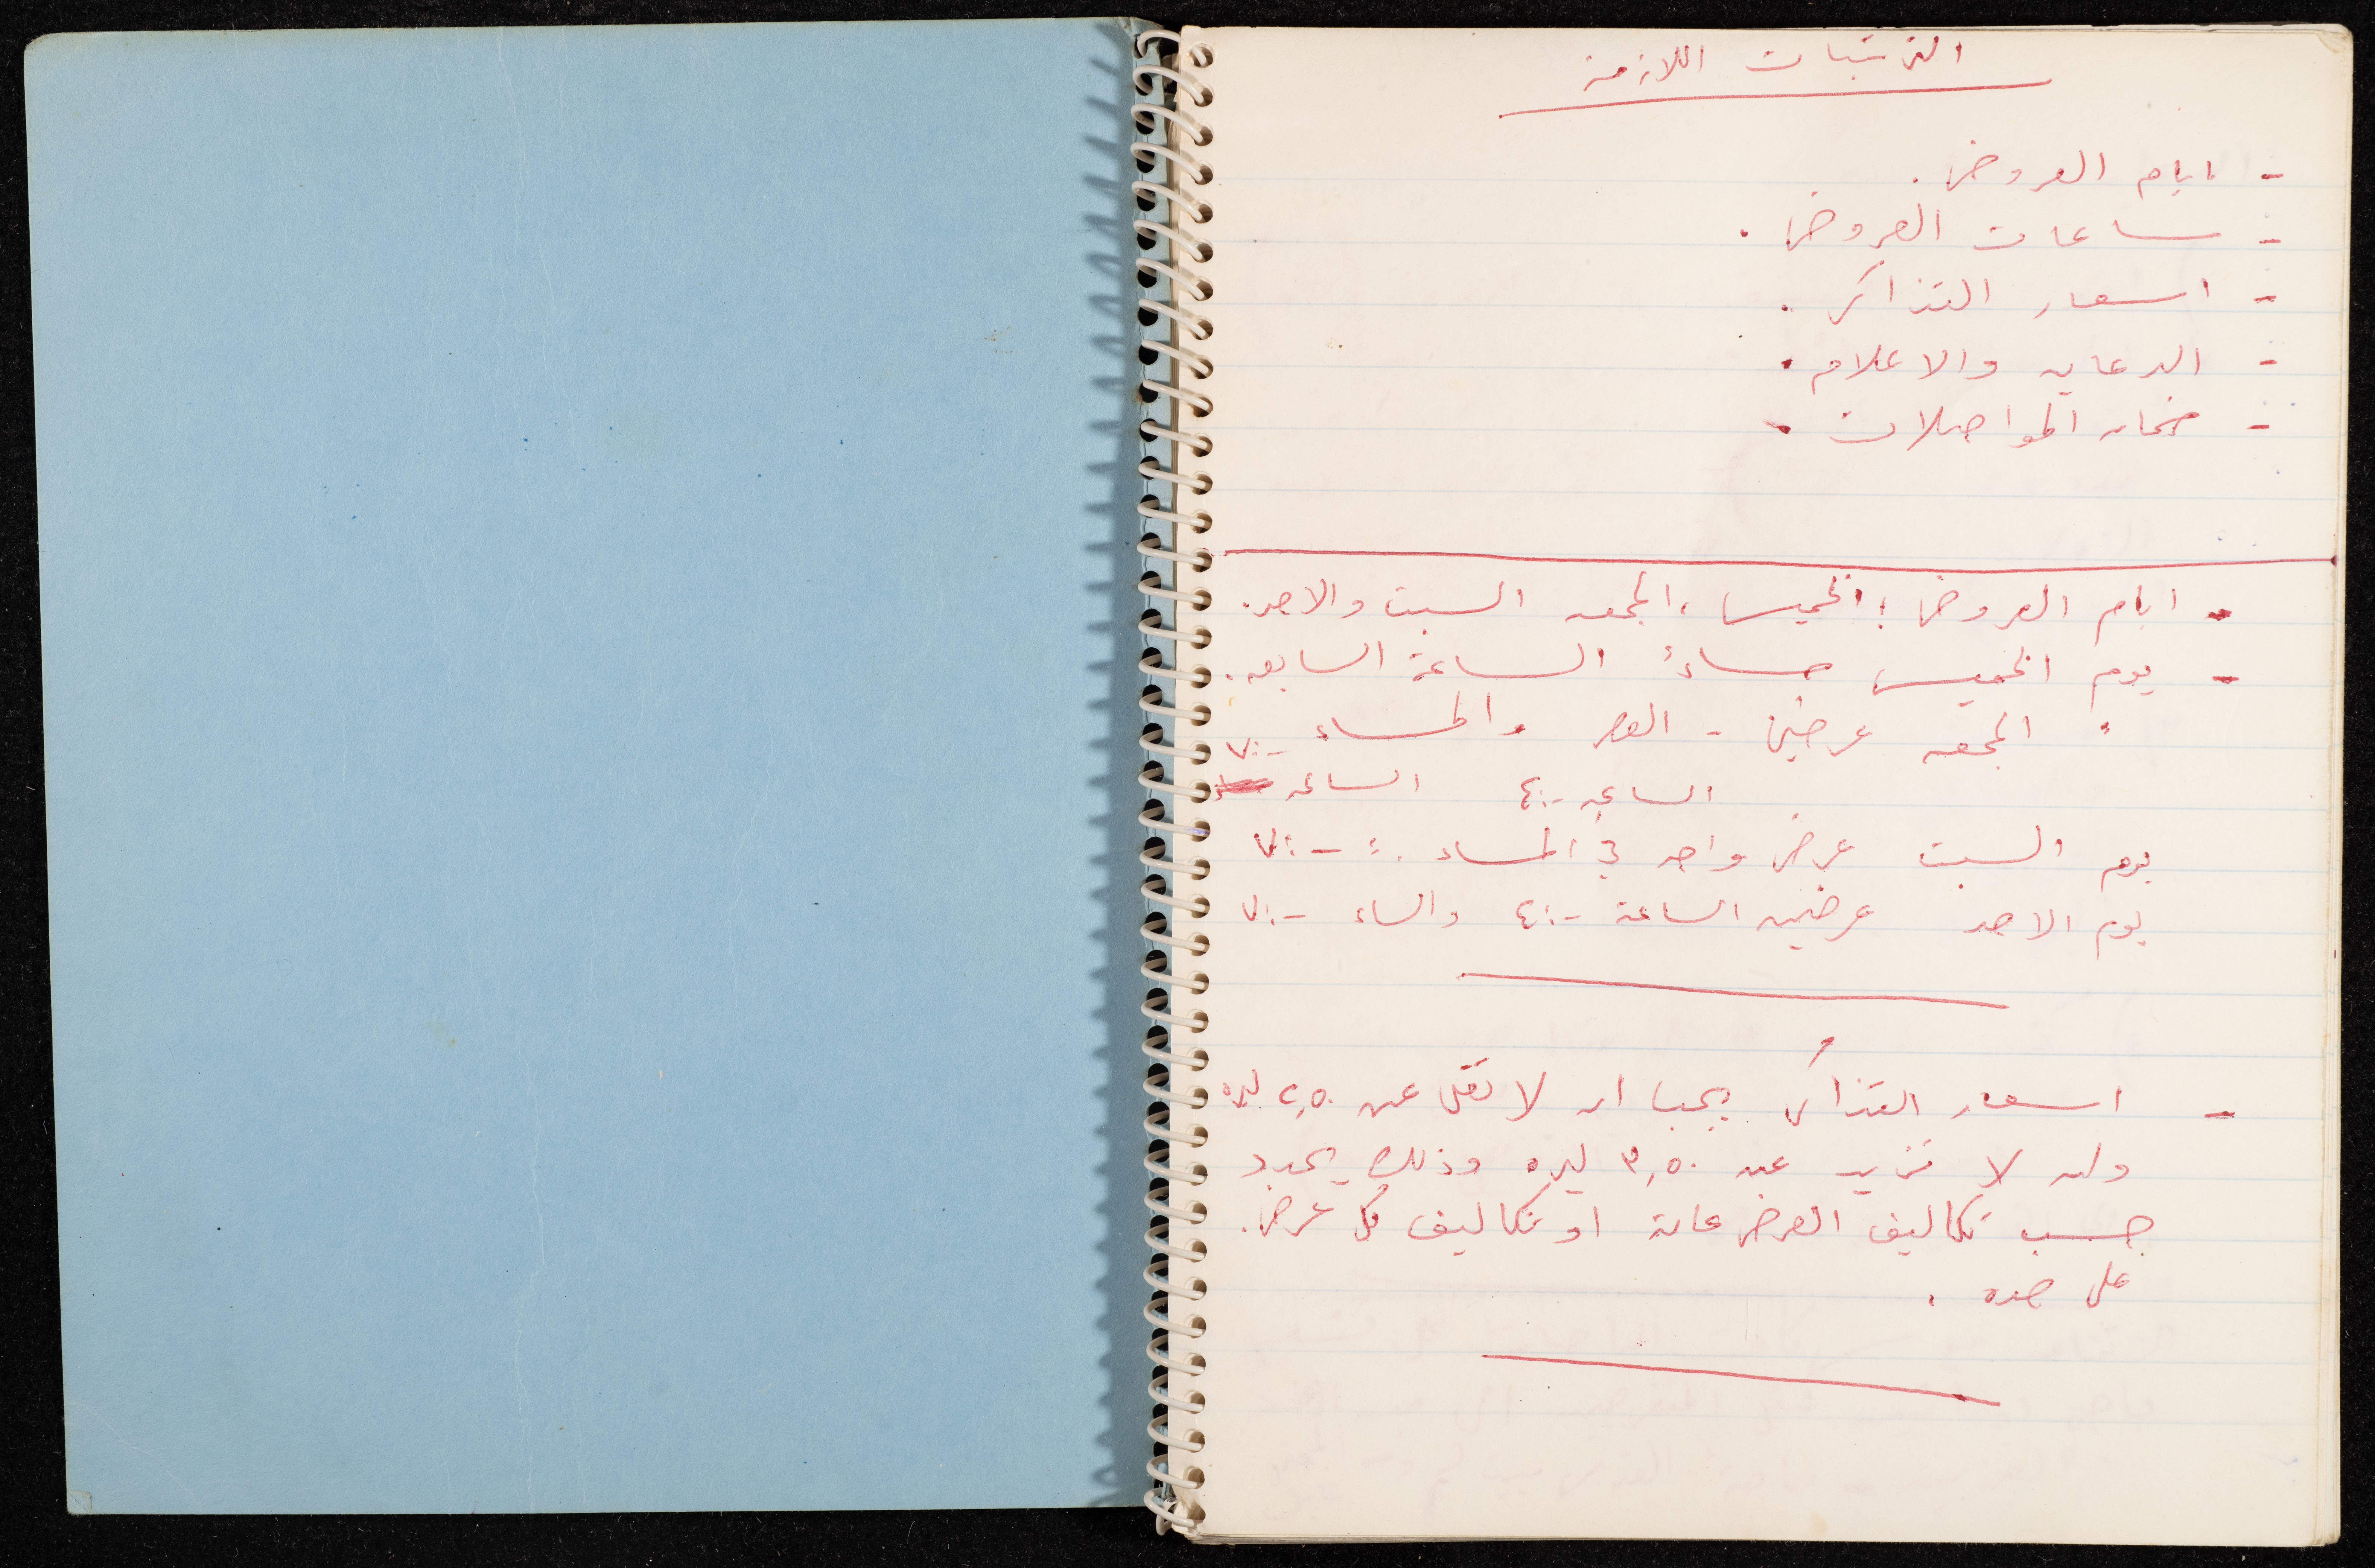 الترتيبات اللازمة
- ايام العروض.
- ساعات العروض.
- اسعار التذاكر.
- الدعايه والاعلام.
- المواصلات.
- ايام العروض: الخميس، الجمعه السبت والاحد.
- يوم الخميس مساءً الساعة السابعه.
" الجمعه عرضين - العصر والمساء ٧:-
الساعه ٤:- الساعه
يوم السبت عرض واحد في المساء ٧:-
يوم الاحد عرضين الساعة ٤:- والمساء ٧:-
- اسعار التذاكر يجب ان لا تقل عن ٢,٥٠ ليره
ولا تزيد عن ٣,٥٠ ليره وذلك يحدد
حسب تكاليف العرض عامة او تكاليف كل عرض.
على حده.